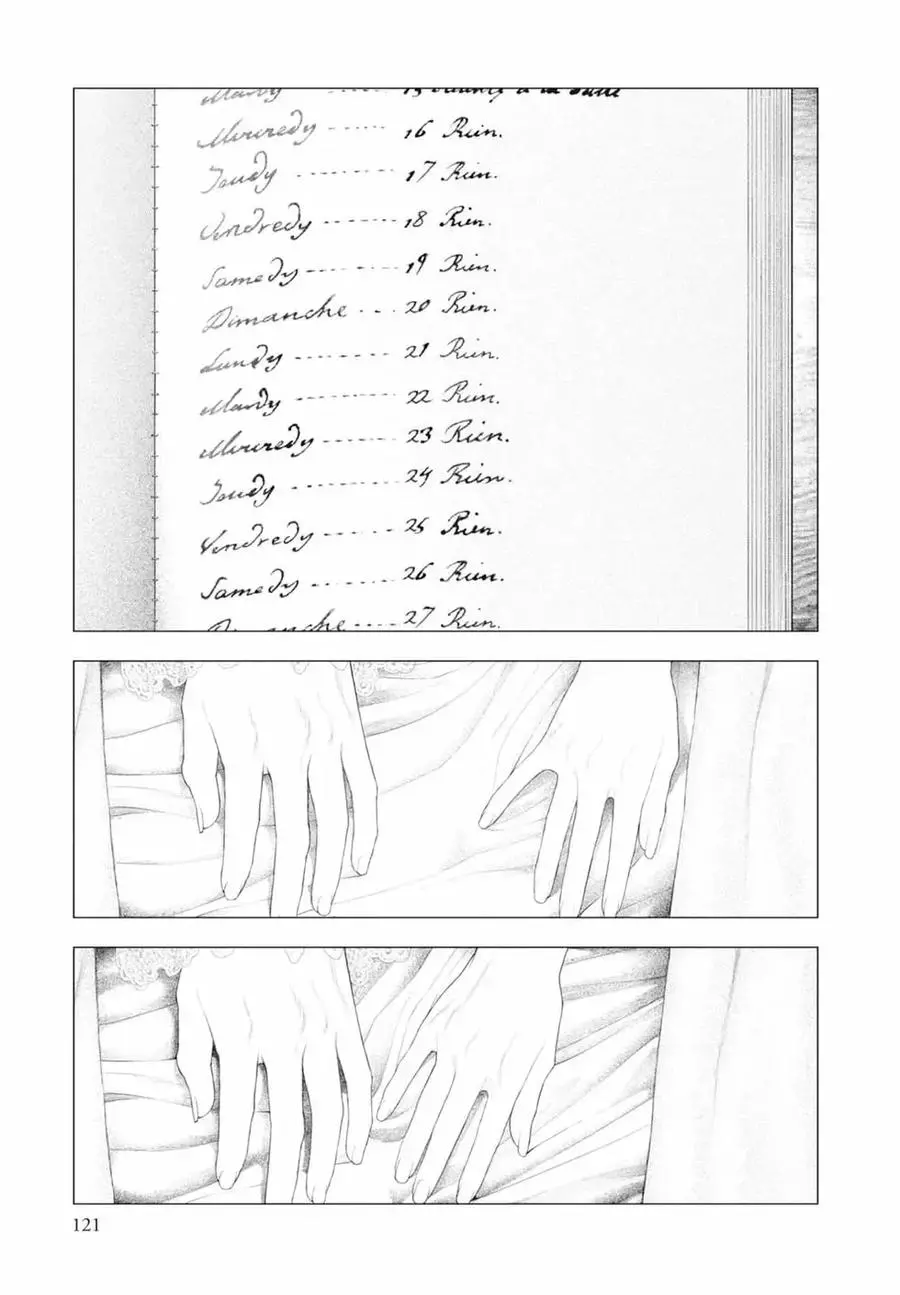 Mardy ------ 15 Séance à la Salle
Mercredy ------ 16 Rien.
Jeudy -------- 17 Rien.
Vendredy ------- 18 Rien.
Samedy ------- 19 Rien.
Dimanche --- 20 Rien.
Lundy -------- 21 Rien.
Mardy -------- 22 Rien.
Mercredy ------ 23 Rien.
Jeudy -------- 24 Rien.
Vendredy ------ 25 Rien.
Samedy ------ 26 Rien.
Dimanche ---- 27 Rien.
121